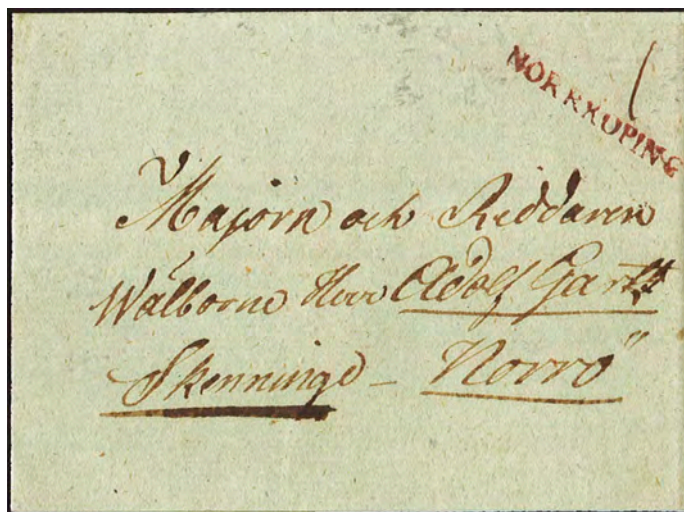 NORRKÖPING
Majorn och Riddaren
Wälborne Herr Adolf
Skenninge – Norrö